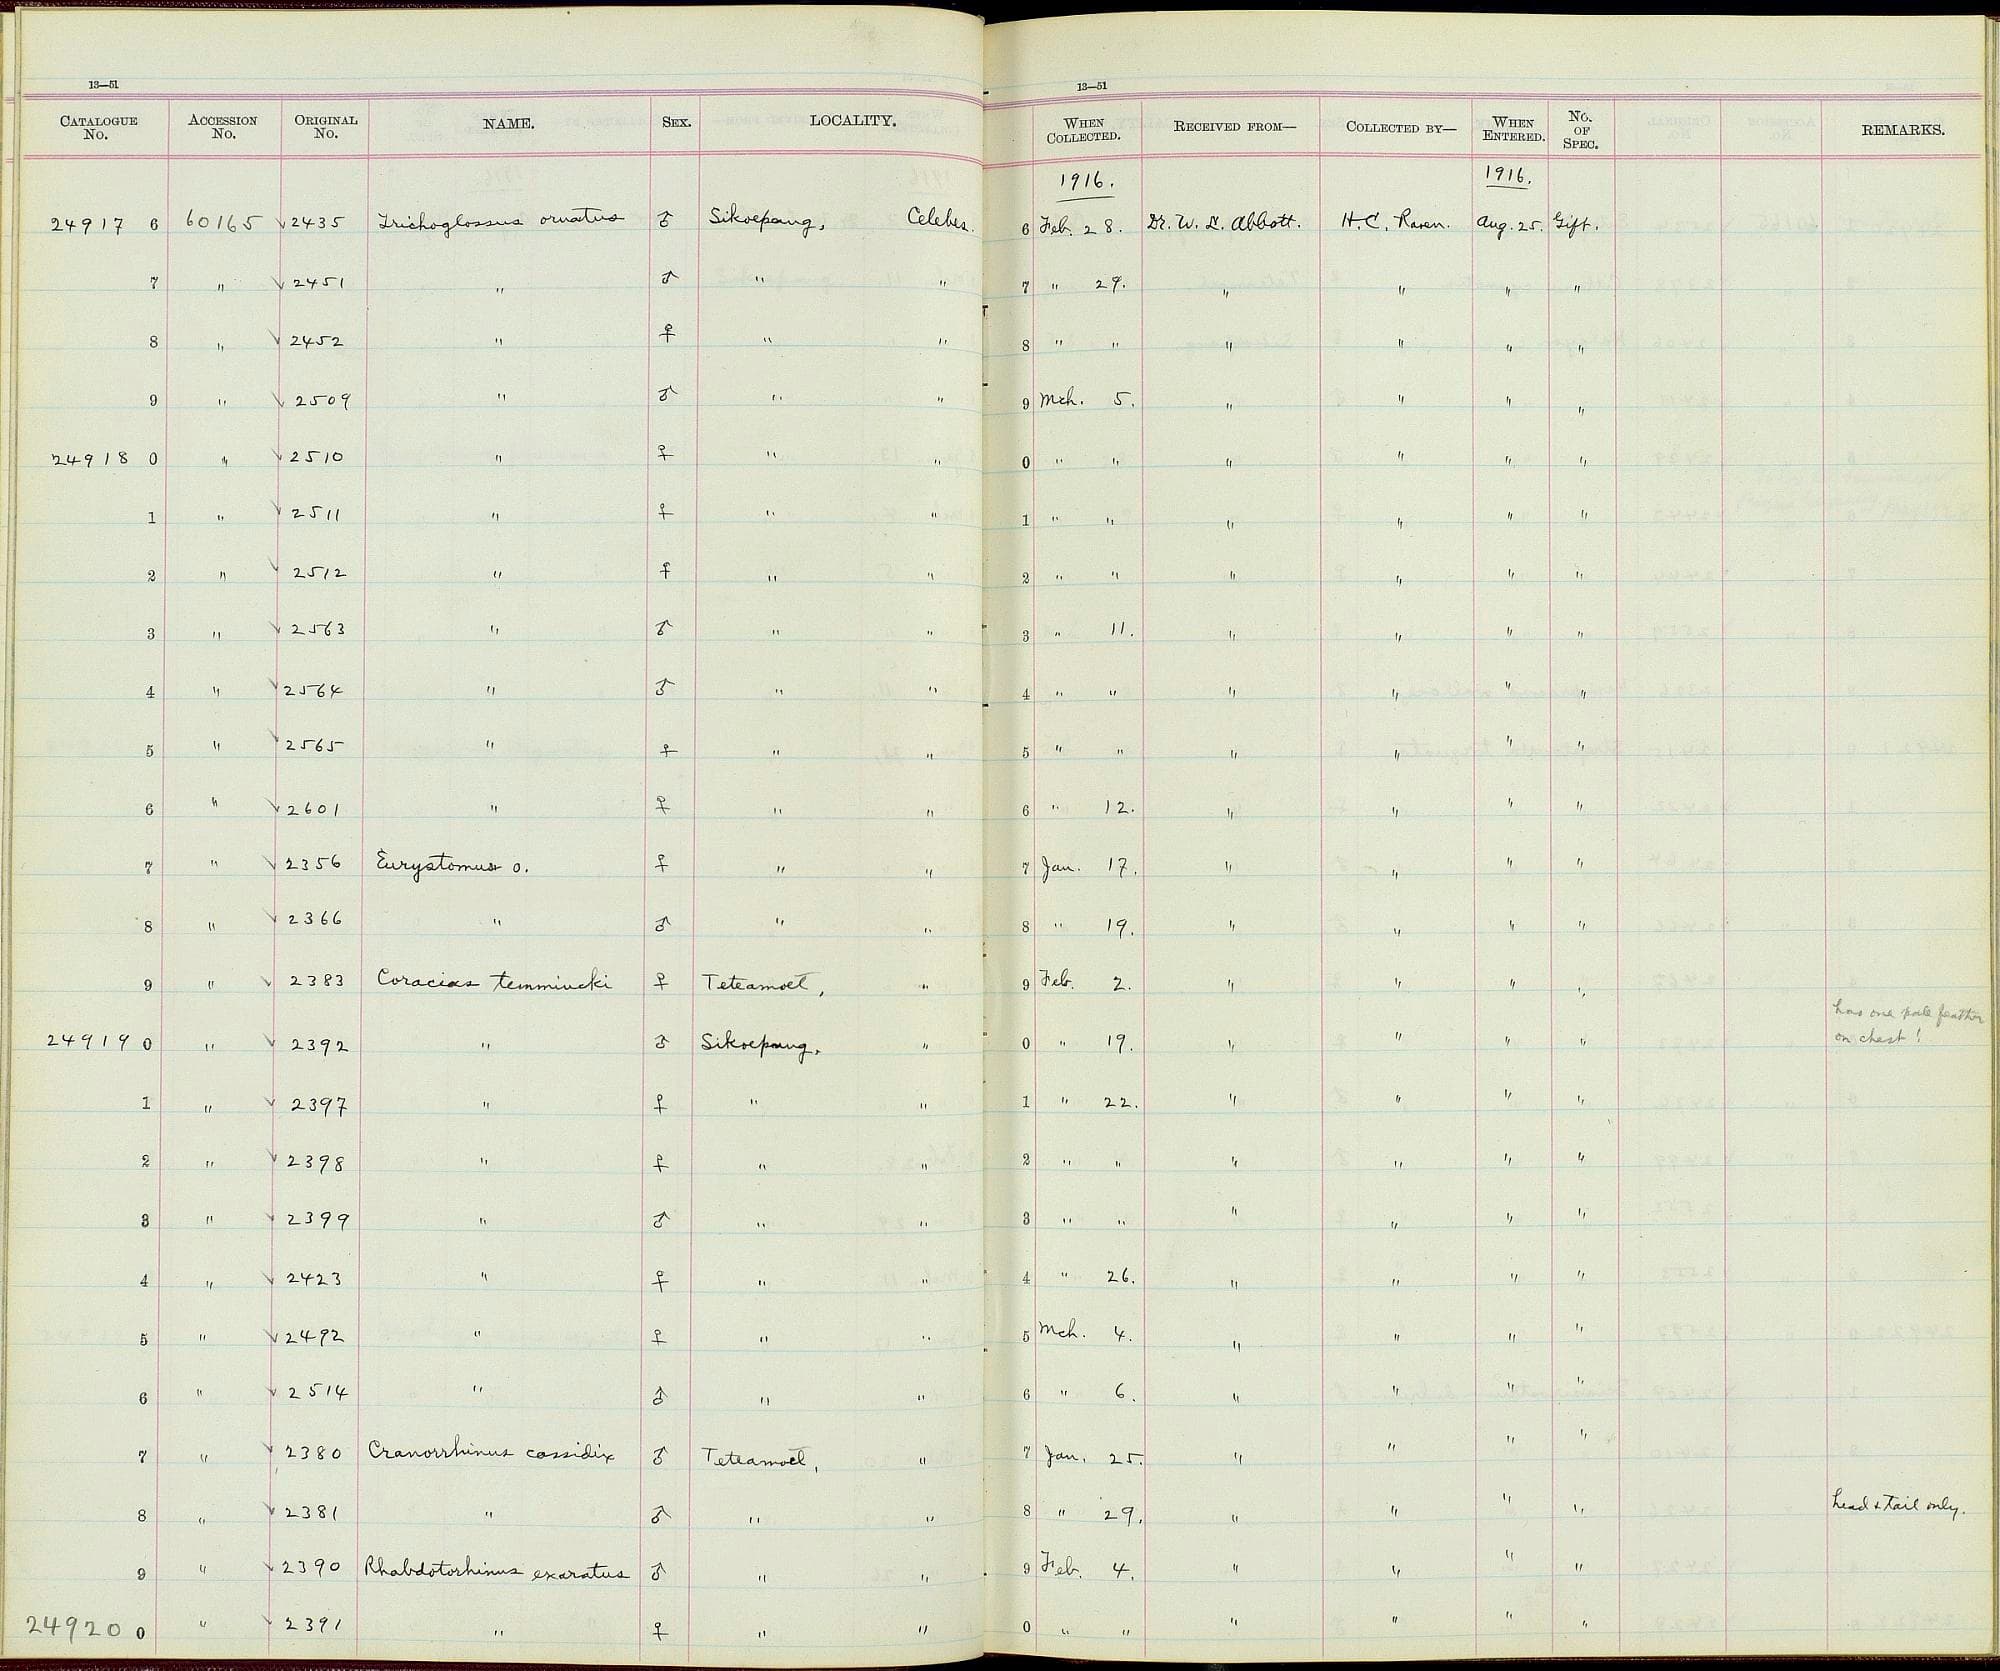 13—51 13—51
CATALOGUE No. ACCESSION No. ORIGINAL No. NAME. SEX. LOCALITY. WHEN COLLECTED. RECEIVED FROM— COLLECTED BY— WHEN ENTERED. No. OF SPEC. REMARKS.
1916. 1916.
24917 6 60165 √2435 Trichoglossus ornatus ♂ Sikoepang, Celebes. 6 Feb. 28. Dr. W. L. Abbott. H. C. Raven. Aug. 25. Gift.
7 " √2451 " ♂ " " 7 " 29. " " " "
8 " √2452 " ♀ " " 8 " " " " " "
9 " √2509 " ♂ " " 9 Mch. 5. " " " "
24918 0 " √2510 " ♀ " " 0 " " " " " "
1 " √2511 " ♀ " " 1 " " " " " "
2 " √2512 " ♀ " " 2 " " " " " "
3 " √2563 " ♂ " " 3 " 11. " " " "
4 " √2564 " ♂ " " 4 " " " " " "
5 " √2565 " ♀ " " 5 " " " " " "
6 " √2601 " ♀ " " 6 " 12. " " " "
7 " √2356 Eurystomus o. ♀ " " 7 Jan. 17. " " " "
8 " √2366 " ♂ " " 8 " 19. " " " "
9 " √2383 Coracias temmincki ♀ Teteamoet, " 9 Feb. 2. " " " "
has one pale feather
24919 0 " √2392 " ♂ Sikoepang, " 0 " 19. " " " " on chest!
1 " √2397 " ♀ " " 1 " 22. " " " "
2 " √2398 " ♀ " " 2 " " " " " "
3 " √2399 " ♂ " " 3 " " " " " "
4 " √2423 " ♀ " " 4 " 26. " " " "
5 " √2492 " ♀ " " 5 Mch. 4. " " " "
6 " √2514 " ♂ " " 6 " 6. " " " "
7 " √2380 Cranorrhinus cassidix ♂ Teteamoet, " 7 Jan. 25. " " " "
8 " √2381 " ♂ " " 8 " 29. " " " " head & tail only.
9 " √2390 Rhabdotorhinus exaratus ♂ " " 9 Feb. 4. " " " "
24920 0 " √2391 " ♀ " " 0 " " " " " "